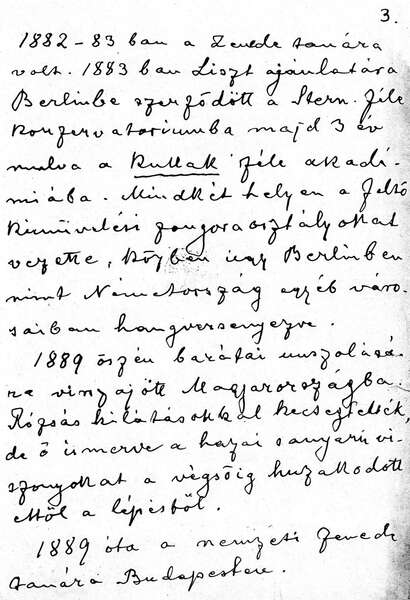 3.
1882-83 ban a Zenede tanára
volt. 1883 ban Liszt ajánlatára
Berlinbe szerződött a Stern. féle
Konzervatoriumba majd 3 év
mulva a Kullak féle akadé-
miába. Mindkét helyen a felső
kiművelési zongoraosztályokat
vezette, közben ugy Berlinben
mint Németország egyéb váro-
saiban hangversenyezve.
1889 őszén barátai unszolásá-
ra visszajött Magyarországba.
Rózsás kilátásokkal kecsegtették,
de ő ismerve a hazai sanyarú vi-
szonyokat a végsőig huzakodott
ettől a lépéstől.
1889 óta a nemzeti zenede
tanára Budapesten.